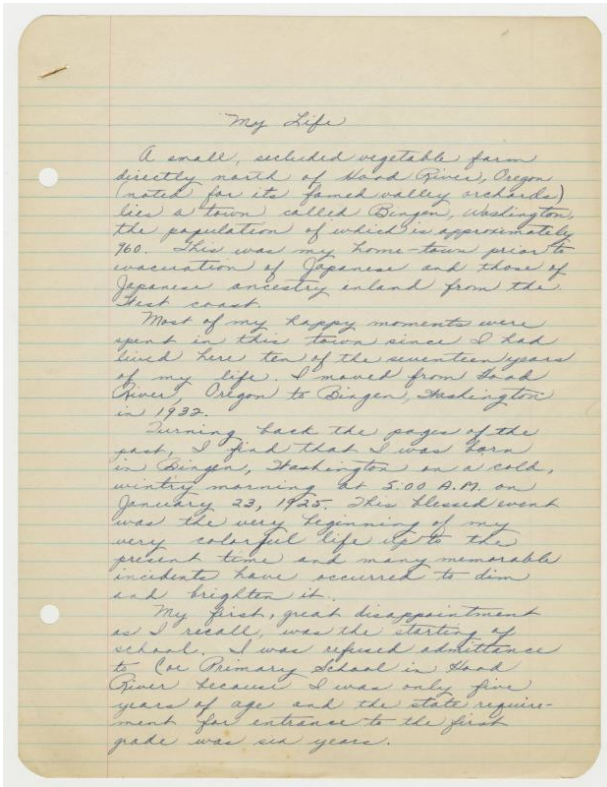 My Life
A small, secluded vegetable farm
directly north of Hood River, Oregon
(noted for its famed valley orchards)
lies a town called Bingen, Washington,
the population of which is approximately
960. This was my home-town prior to
evacuation of Japanese and those of
Japanese ancestry inland from the
West coast.
Most of my happy moments were
spent in this town since I had
lived here ten of the seventeen years
of my life. I moved from Hood
River, Oregon to Bingen, Washington
in 1932.
Turning back the pages of the
past, I find that I was born
in Bingen, Washington on a cold,
wintry morning at 5:00 A.M. on
January 23, 1925. This blessed event
was the very beginning of my
very colorful life up to the
present time and many memorable
incidents have occurred to dim
and brighten it.
My first, great disappointment
as I recall, was the starting of
school. I was refused admittance
to Coe Primary School in Hood
River because I was only five
years of age and the state require-
ment for entrance to the first
grade was six years.